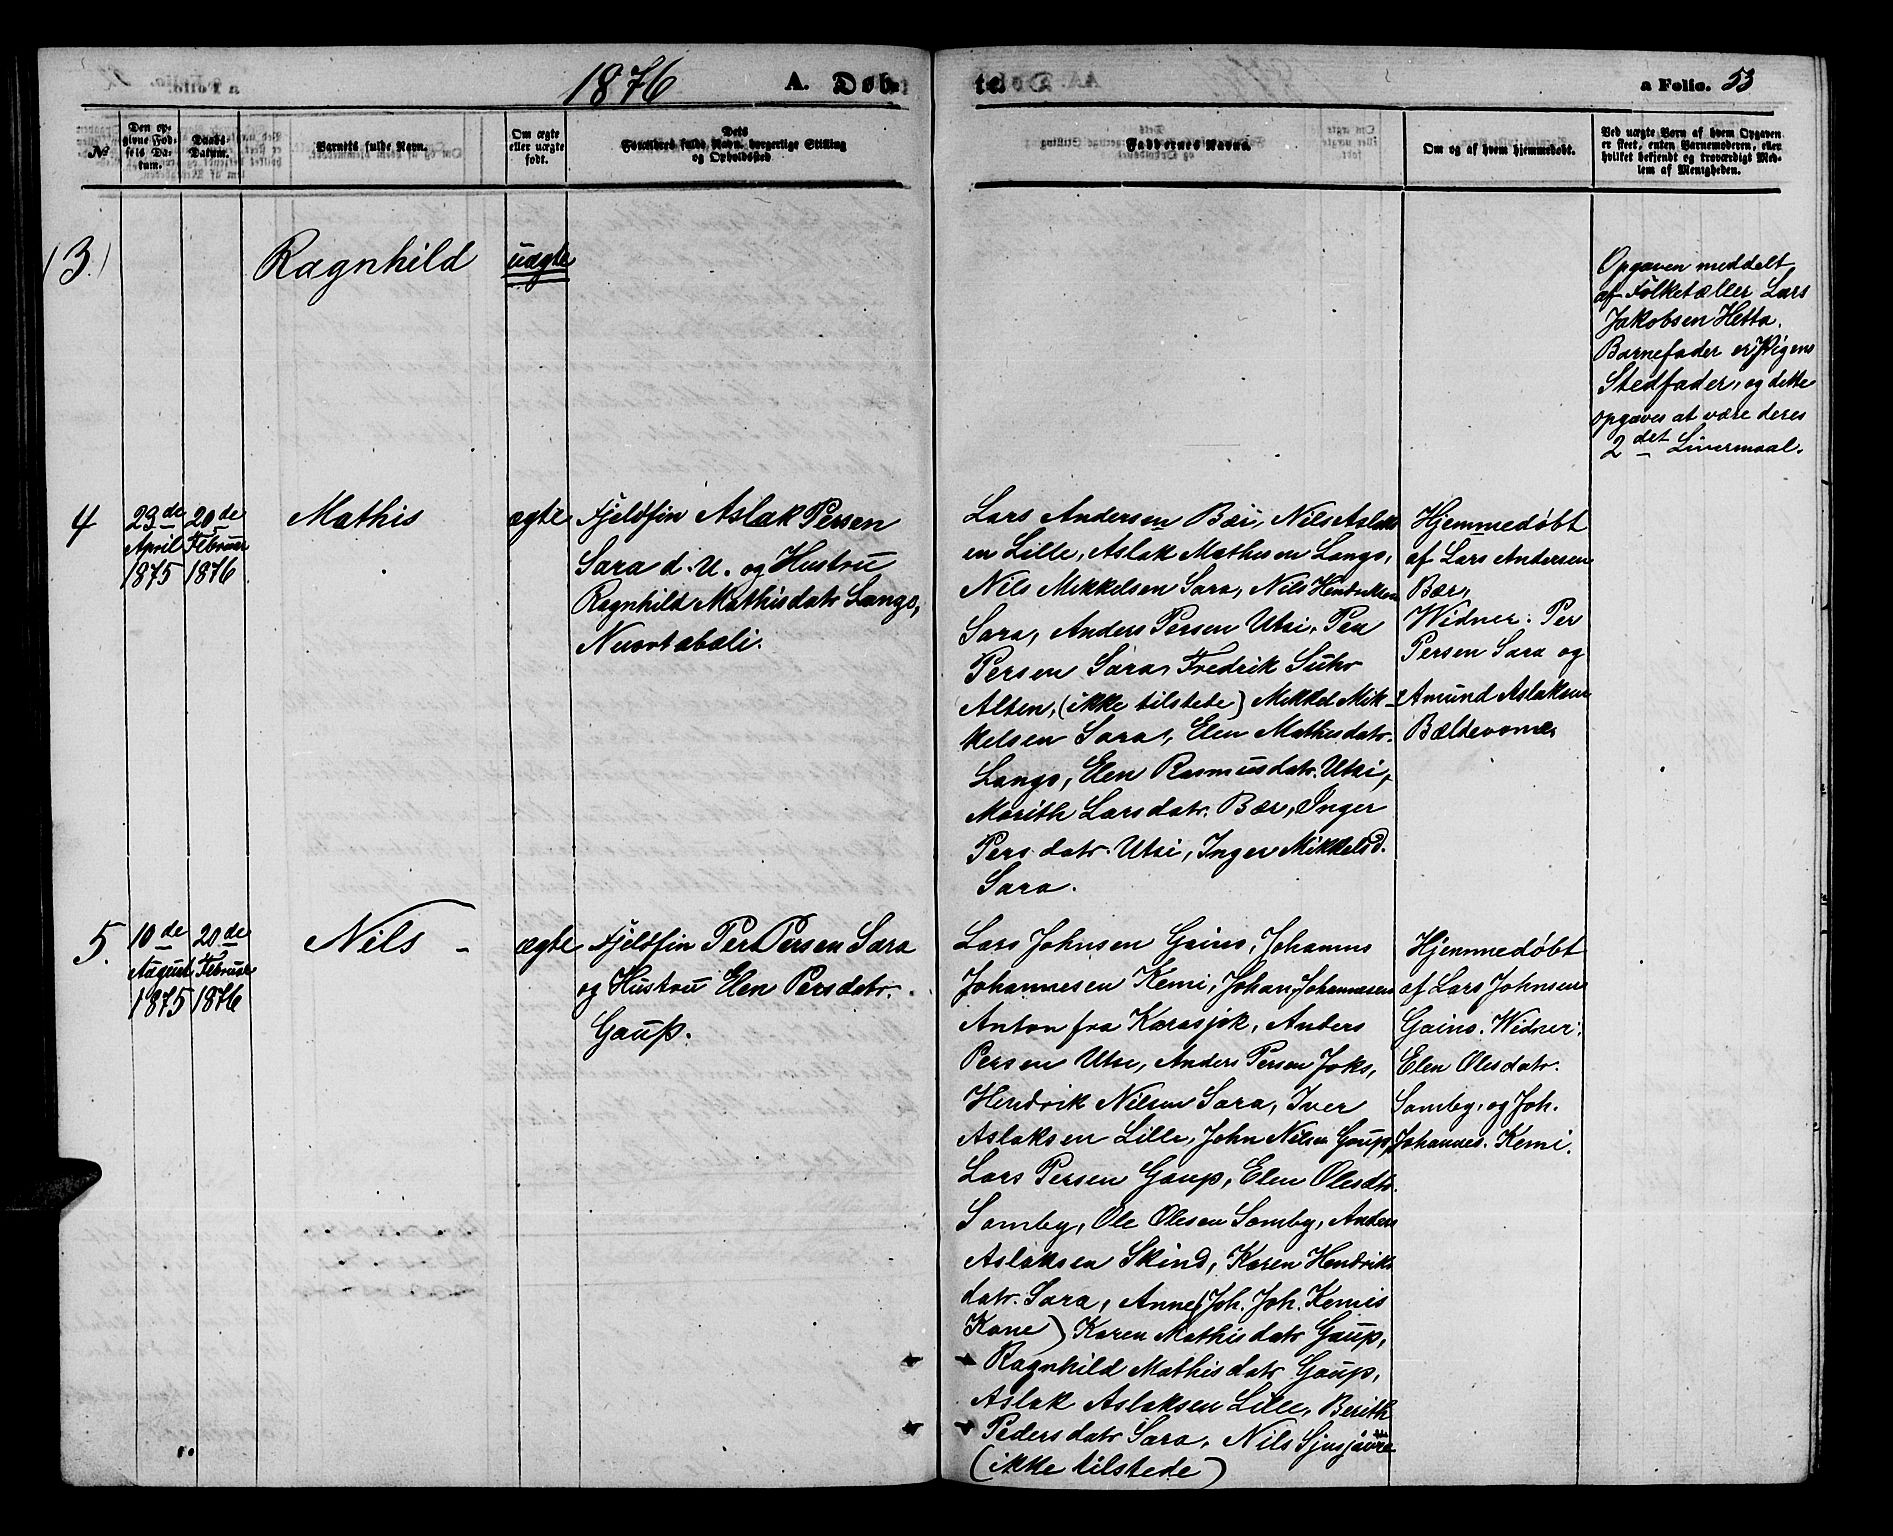 1876
A. Døb-
te.
a Folio. 53
No
Den op-
givne Fød-
sels Da-
tum.
Daabs
Datum.
Barnets fulde Navn.
Om ægte
eller uægte
født.
Dets
Forældres fulde Navn, borgerlige Stilling
og Opholdssted
Faddernes Navne.
Om og af hvem hjemmedøbt.
Ved uægte Børn af hvem Opgaven
er skeet, enten Barnemoderen, eller
hvilket bekjendt og troværdigt Med-
lem af Menigheden.
(3.)
Ragnhild
uægte
Opgaven meddelt
af Folketæller Lars
Jakobsen Hetta.
Barnefader er Pigens
Stedfader, og dette
opgaves at være deres
2det Leiermaal.
4
29de
April
1875
20de
Februar
1876
Mathis
ægte
Fjeldfin Aslak Persen
Sara d. U. og Hustru
Ragnhild Mathisdatr Lango,
Nuortabæli.
Lars Andersen Bær, Nils Aslaks
en Lille, Aslak Mathisen Lango,
Nils Mikkelsen Sara, Nils Hendriksen
Sara, Anders Persen Utsi, Per
Persen Sara, Fredrik Suhr
Alten, (ikke tilstede) Mikkel Mik-
kelsen Sara, Elen Mathisdatr.
Lango, Elen Rasmusdatr. Utsi,
Marith Larsdatr. Bær, Inger
Persdatr. Utsi, Inger Mikkelsd.
Sara.
Hjemmedøbt
af Lars Andersen
Bær,
Widner: Per
Persen Sara og
Amund Aslaksen
Bældevome,
5.
10de
August
1875
20de
Februar
1876
Nils -
ægte
Fjeldfin Per Persen Sara
og Hustru Elen Persdatr.
Gaup.
Lars Johnsen Gaino, Johannes
Johannesen Kemi, Johan Johannesen
Anton fra Karasjok, Anders
Persen Utsi, Anders Persen Joks,
Hendrik Nilsen Sara, Iver
Aslaksen Lille, John Nilsen Gaup,
Lars Persen Gaup, Elen Olesdtr.
Somby, Ole Olesen Somby, Anders
Aslaksen Skind, Karen Hendriks
datr. Sara, Anne (Joh. Joh. Kemis
Kone) Karen Mathisdatr Gaup,
Ragnhild Mathisdatr Gaup,
Aslak Aslaksen Lille, Berith
Pedersdatr Sara, Nils Sjusjavra
(ikke tilstede)
Hjemmedøbt
af Lars Johnsen
Gaino. Widner:
Elen Olesdatr.
Somby, og Joh.
Johannes. Kemi.